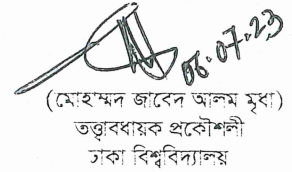 06.07.23
(মোহাম্মদ জাবেদ আলম মৃধা)
তত্ত্বাবধায়ক প্রকৌশলী
ঢাকা বিশ্ববিদ্যালয়